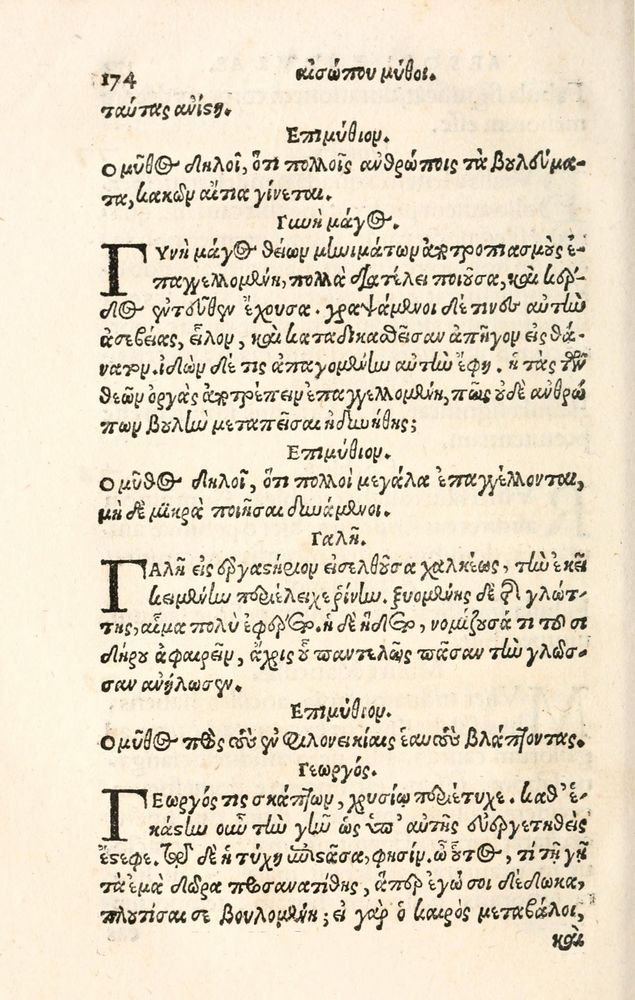 174 αἰσώπου μῦθοι.
ταύτας ἀνίϛη.
Ἐπιμύθιον.
Ὁ μῦθος δηλοῖ, ὅτι πολλοῖς ἀνθρώποις τὰ βουλεύμα-
τα, κακῶν αἴτια γίνεται.
Γυνὴ μάγος.
ΓΥνὴ μάγος θείων μηνιμάτων ἀποτροπιασμοὺς ἐ-
παγγελλομένη, πολλὰ διατέλει ποιοῦσα, καὶ κέρ-
δος ἐντεῦθεν ἔχουσα. γραψάμενοι δέ τινες αὐτὴν
ἀσεβείας, εἷλον, καὶ καταδικασθεῖσαν ἀπῆγον εἰς θά-
νατον. ἰδὼν δέ τις ἀπαγομένην αὐτὴν ἔφη. ἡ τὰς τῶν
θεῶν ὀργὰς ἀποτρέπειν ἐπαγγελλομένη, πῶς οὐδὲ ἀνθρώ
πων βουλὴν μεταπεῖσαι ἠδυνήθης;
Ἐπιμύθιον.
Ὁ μῦθος δηλοῖ, ὅτι πολλοὶ μεγάλα ἐπαγγέλλονται,
μὴ δὲ μικρὰ ποιῆσαι δυνάμενοι.
Γαλῆ.
ΓΑλῆ εἰς ἐργαϛήριον εἰσελθοῦσα χαλκέως, τὴν ἐκεῖ
κειμένην περιέλειχε ῥίνην. ξυομένης δὲ τῆς γλώτ-
της, αἷμα πολὺ ἐφέρετο. ἡ δὲ ἥδετο, νομίζουσά τι τοῦ σι
δήρου ἀφαιρεῖν, ἄχρις οὗ παντελῶς πᾶσαν τὴν γλῶσ-
σαν ἀνήλωσεν.
Ἐπιμύθιον.
Ὁ μῦθος πρὸς τοὺς ἐν φιλονεικίαις ἑαυτοὺς βλάπτοντας.
Γεωργός.
ΓΕωργός τις σκάπτων, χρυσίῳ περιέτυχε. καθ' ἑ-
κάϛην οὖν τὴν γῆν ὡς ὑπ' αὐτῆς εὐεργετηθεὶς
ἔϛεφε. τῷ δὲ ἡ τύχη ἐπιϛᾶσα, φησίν. ὦ οὗτος, τί τῇ γῇ
τὰ ἐμὰ δῶρα προσανατίθης, ἅπερ ἐγώ σοι δέδωκα,
πλουτίσαι σε βουλομένη; εἰ γὰρ ὁ καιρὸς μεταβάλοι,
καὶ